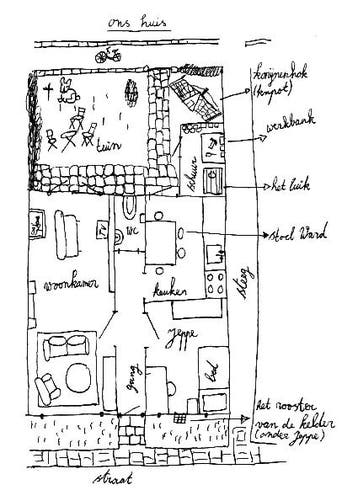 ons huis
konijnenhok
(knijpot)
werkbank
tuin
schuur
het luik
TV
WC
stoel Ward
woonkamer
keuken
steeg
Jeppe
gang
bed
het rooster
van de kelder
(onder Jeppe)
straat